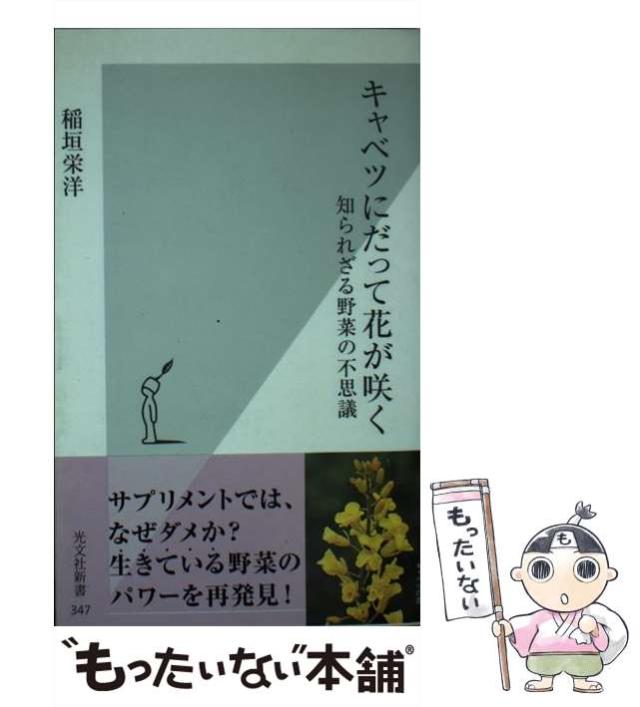 キャベツにだって花が咲く
知られざる野菜の不思議
稲垣栄洋
サプリメントでは、
なぜダメか?
生きている野菜の
パワーを再発見!
光文社新書
347
"もったいない"本舗®
もったいない
も